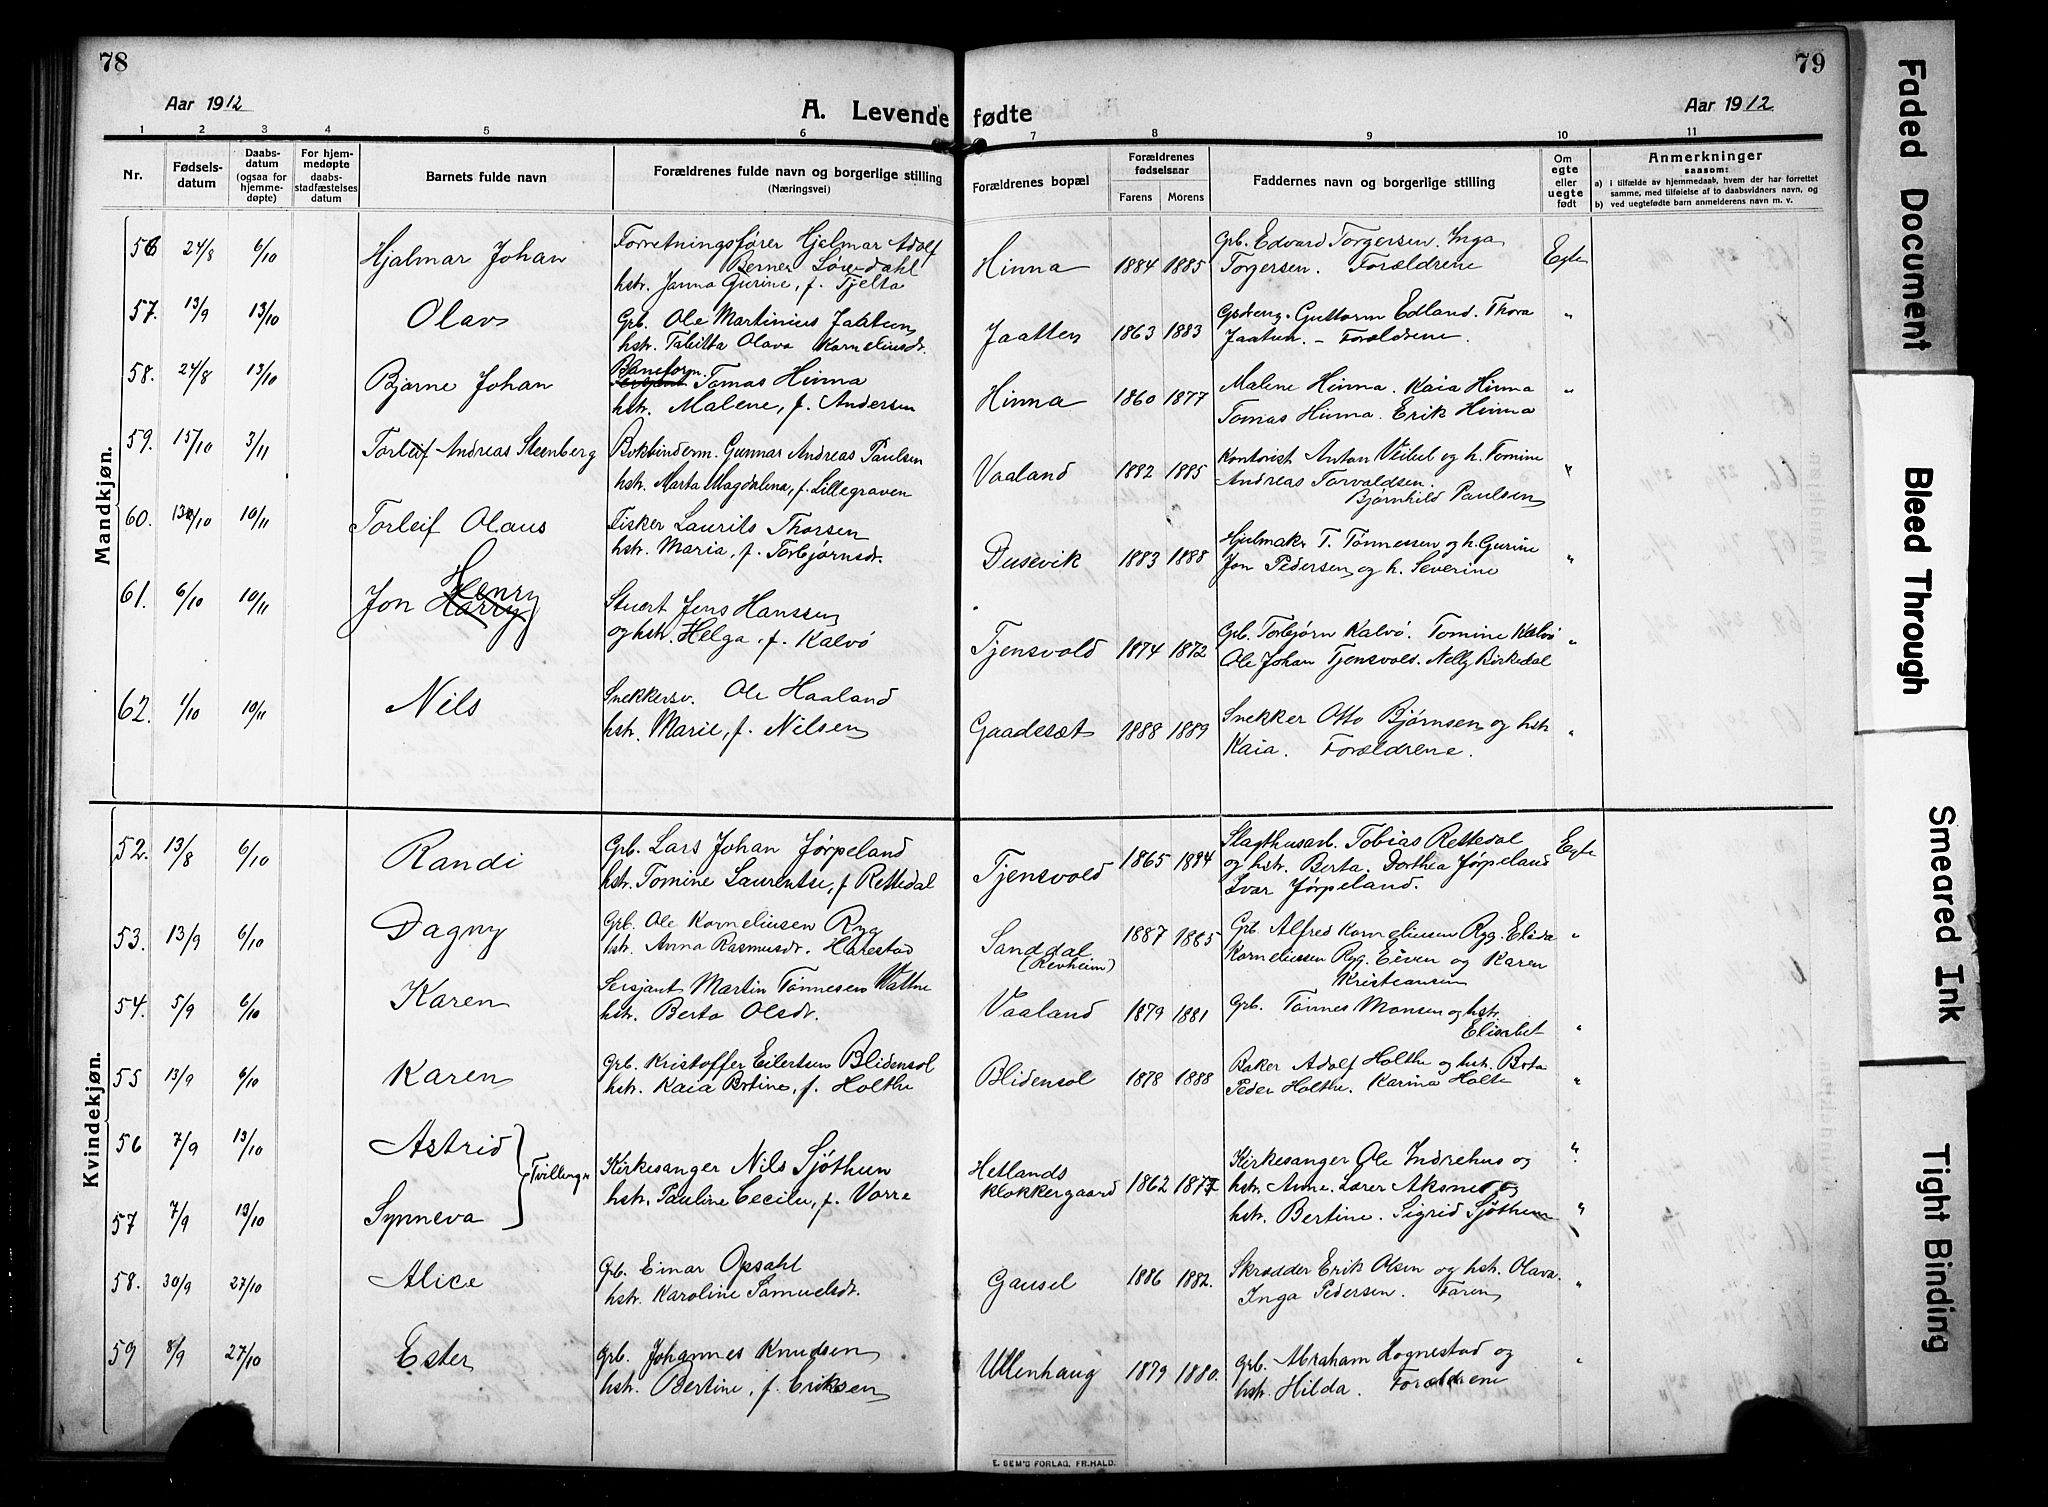 78
79
Aar 1912
A. Levende fødte
Aar 1912
1 2 3 4 5 6 7 8 9 10 11
Nr.
Fødsels-
datum
Daabs-
datum
(ogsaa for
hjemme-
døpte)
For hjem-
medøpte
daabs-
stadfæstelses
datum
Barnets fulde navn
Forældrenes fulde navn og borgerlige stilling
(Næringsvei)
Forældrenes bopæl
Forældrenes
fødselsaar
Farens Morens
Faddernes navn og borgerlige stilling
Om
egte
eller
uegte
født
Anmerkninger
saasom:
a) i tilfælde av hjemmedaab, hvem der har forrettet
samme, med tilføielse af to daabsvidners navn, og
b) ved uegtefødte barn anmelderens navn m. v.
Mandkjøn.
56 24/8 6/10 Hjalmar Johan
Forretningsfører Hjalmar Adolf
Berner Løvedahl
hstr. Janna Gurine, f. Tjelta
Hinna 1884 1885
Grb. Edvard Torgersen. Inga
Torgersen. Forældrene
Egte
57. 13/9 13/10 Olav
Grb. Ole Martinius Jaatun
hstr. Tabitta Olava Korneliusdt.
Jaatten 1863 1883
Grdeng. Guttorm Edland. Thora
Jaatun. – Forældrene.
"
58. 24/8 13/10 Bjarne Johan
Baneform.
Tomas Hinna
hstr. Malene, f. Andersen
Hinna 1860 1877
Malene Hinna. Kaia Hinna
Tomas Hinna. Erik Hinna
"
59. 15/10 3/11 Torleif Andreas Steenberg
Bokbinderm. Gunnar Andreas Paulsen
hstr. Marta Magdalena, f. Lillegraven
Vaaland 1882 1885
Kontorist Anton og h. Tomine
Andreas Torvaldsen.
Bjørnhild Paulsen
"
60. 10/11 Torleif Olaus
Fisker Laurits Thorsen
hstr. Maria, f. Torbjørnsdt.
Dusevik 1883 1888
Hjulmak. T. Tønnessen og h. Gurine
Jon Pedersen og h. Severine
"
61. 6/10 10/11 Jon Harry Henry
Stuert Jens Hanssen
og hstr. Helga, f. Kalvø
Tjensvold 1874 1872
Grb. Torbjørn Kalvø. Tomine Kalvø
Ole Johan Tjensvold. Nelly Birkedal
"
62. 1/10 10/11 Nils
Snekkersv. Ole Haaland
hstr. Marie, f. Nilsen
Gaadesæt 1888 1889
Snekker Otto Bjørnsen og hstr
Kaia. Forældrene.
"
Kvindekjøn.
52. 13/8 6/10 Randi
Grb. Lars Johan Jørpeland
hstr. Tomine Laurentse, f. Rettedal
Tjensvold 1865 1884
Slagthusarb. Tobias Rettedal
og hstr. Berta. Dorthea Jørpeland
Ivar Jørpeland.
Egte
53. 13/9 6/10 Dagny
Grb. Ole Korneliusen Ryg
hstr. Anna Rasmusdt. Harestad
Sanddal
(Revheim)
1887 1885
Grb. Alfred Korneliusen Ryg. Elida
Korneliussen Ryg. Eiven og Karen
Kristiansen
"
54. 5/9 6/10 Karen
Sersjant Martin Tønnesen Vatne
hstr. Berta Olsdt.
Vaaland 1879 1881
Grb. Tønnes Monsen og hstr.
Elisabet
"
55 13/9 6/10 Karen
Grb. Kristoffer Eilertsen Blidensol
hstr. Kaia Bertine, f. Holthe
Blidensol 1878 1888
Baker Adolf Holthe og hstr. Berta
Peder Holthe. Karina Holte
"
56 7/9 13/10 Astrid
Tvillinger
Kirkesanger Nils Sjøthun
hstr. Pauline Cecilie, f. Vorre
Hetlands
klokkergaard 1862 1877
Kirkesanger Ole Indrehus og
hstr. Anne. Lærer Aksnes og
hstr. Bertine. Sigrid Sjøthun
"
57 7/9 13/10 Synneva
"
58. 30/9 27/10 Alice
Grb. Einar Opsahl
hstr. Karoline Samuelsdt.
Gausel 1886 1882.
Skrædder Erik Olsen og hstr. Olava.
Inga Pedersen. Faren
"
59 8/9 27/10 Ester
Grb. Johannes Knudsen
hstr. Bertine, f. Eriksen
Ullenhaug 1879 1880.
Grb. Abraham Hognestad og
hstr. Hilda. Forældrene
"
E. SEM'S FORLAG, FR.HALD.
Faded Document
Bleed Through
Smeared Ink
Tight Binding